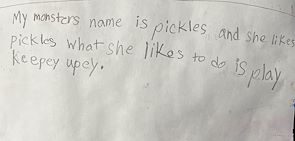 My monsters name is pickles, and she likes
pickles what she likes to do is play
Keepey upey.